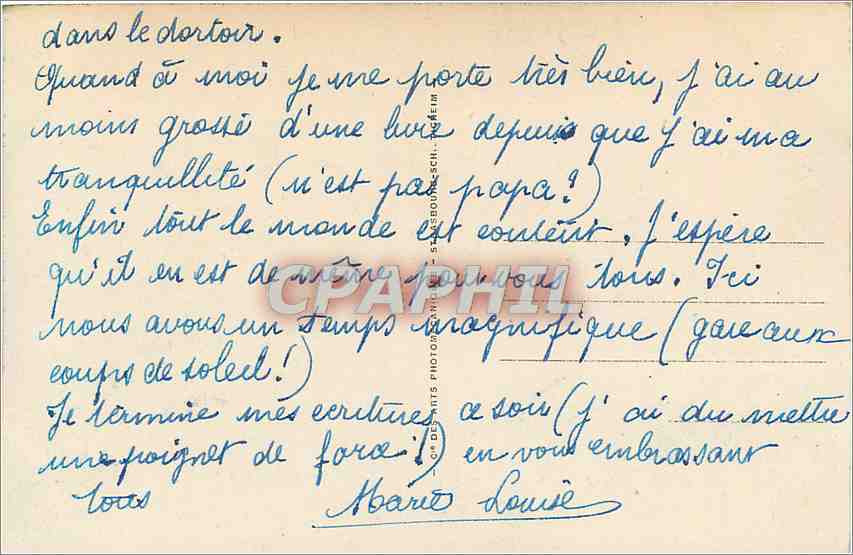 dans le dortoir.
Quand à moi je me porte très bien, j'ai au
moins grossé d'une livre depuis que j'ai ma
tranquillité (n'est pas papa?)
Enfin tout le monde est content. J'espère
qu'il en est de même pour vous tous. Ici
nous avons un temps magnifique (gare aux
coups de soleil!)
Je termine mes ecritures ce soir (j'ai du mettre
une poignet de force!) en vous embrassant
tous
Marie Louise
CPAPHIL
Cie DES ARTS PHOTOMÉCANIQUES — STRASBOURG-SCH